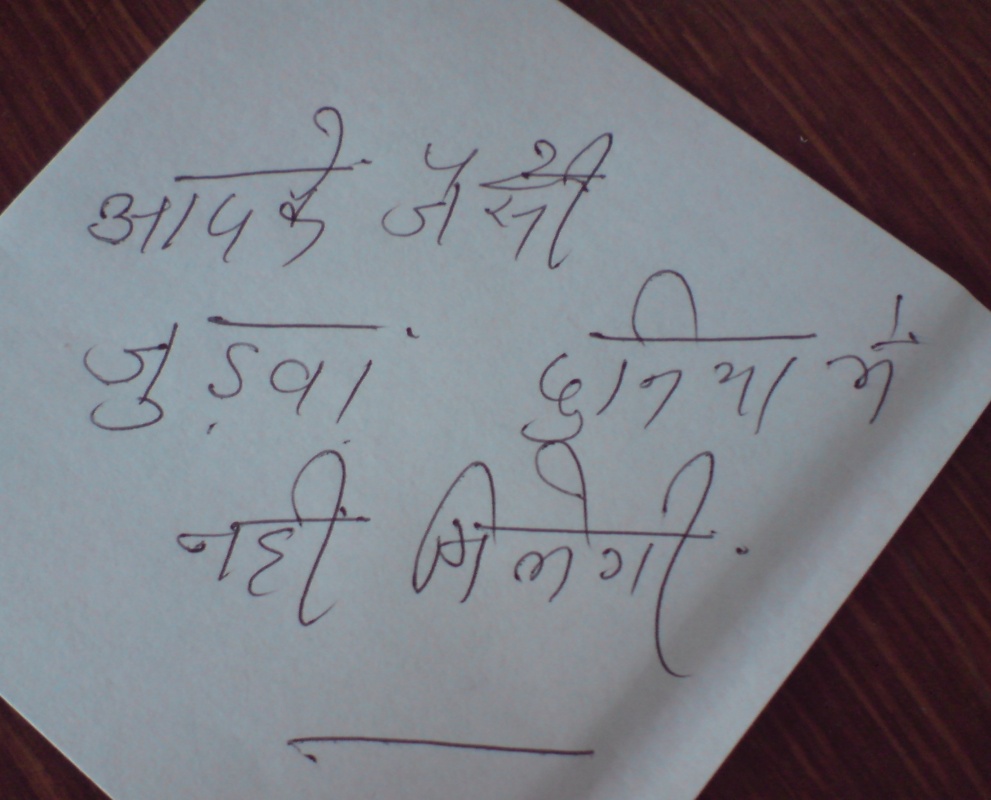 आपके जैसी
जुड़वां दुनिया में
नही मिलेगी.